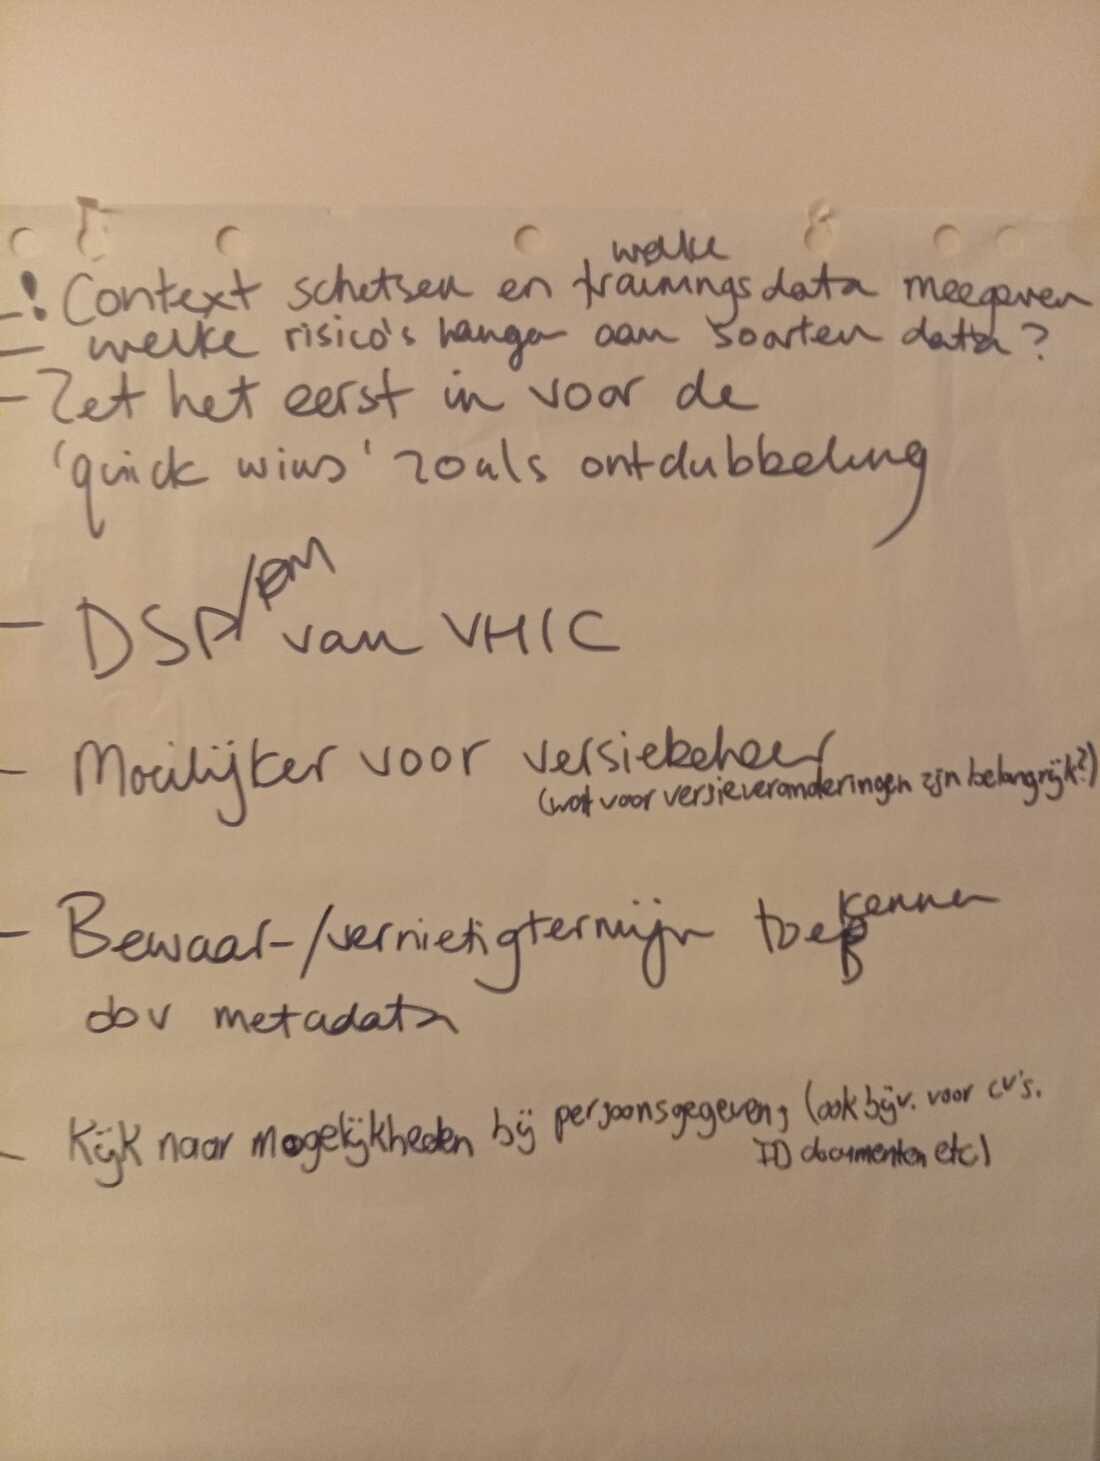 -! Context schetsen en welke trainingsdata meegeven
- welke risico's hangen aan soorten data?
- Zet het eerst in voor de
'quick wins' zoals ontdubbeling
- DSP/RM van VHIC
- Moeilijker voor versiebeheer
(wat voor versieveranderingen zijn belangrijk?)
- Bewaar-/vernietigtermijn toekennen
obv metadata
- Kijk naar mogelijkheden bij persoonsgegevens (ook bijv. voor cv's.
ID documenten etc)